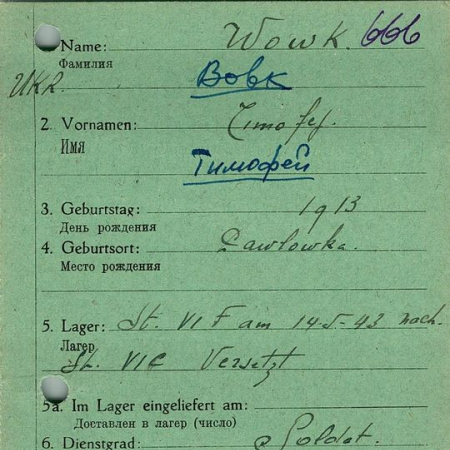 Name: Wowk. 666
Фамилия
UKR.
Вовк
2. Vornamen: Timofej.
Имя
Тимофей
3. Geburtstag: 1913
День рождения
4. Geburtsort: Pawlowka.
Место рождения
5. Lager: St. VI F am 14-5-43 nach.
Лагерь
St. VI C Versetzt
5a. Im Lager eingeliefert am:
Доставлен в лагерь (число)
6. Dienstgrad: Soldat.